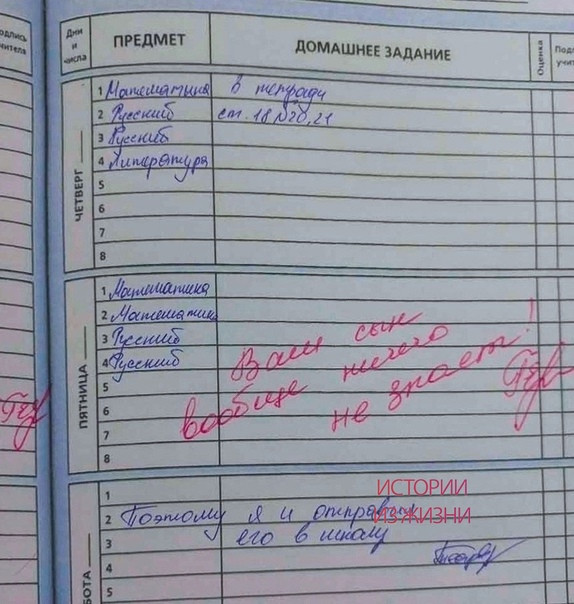 Дни и числа
ПРЕДМЕТ
ДОМАШНЕЕ ЗАДАНИЕ
Оценка
ЧЕТВЕРГ
1 Математика в тетради
2 Русский ст. 18 №20, 21
3 Русский
4 Литература
5
6
7
8
ПЯТНИЦА
1 Математика
2 Математика
3 Русский
4 Русский
5
6
7
8
Ваш сын
вообще ничего
не знает!
1
2 Поэтому я и отправил
3 его в школу
4
5
ИСТОРИИ
ИЗ ЖИЗНИ